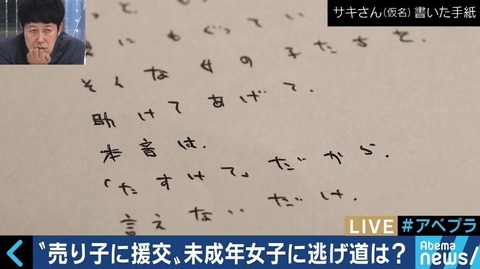 サキさん(仮名)書いた手紙
にもぐってい
る女の子たちを。
そんな女の子だちを
助けてあげて。
本音は、
「たすけて」だから。
言えないだけ。
LIVE #アベプラ
〝売り子に援交〟未成年女子に逃げ道は?
Abema news/